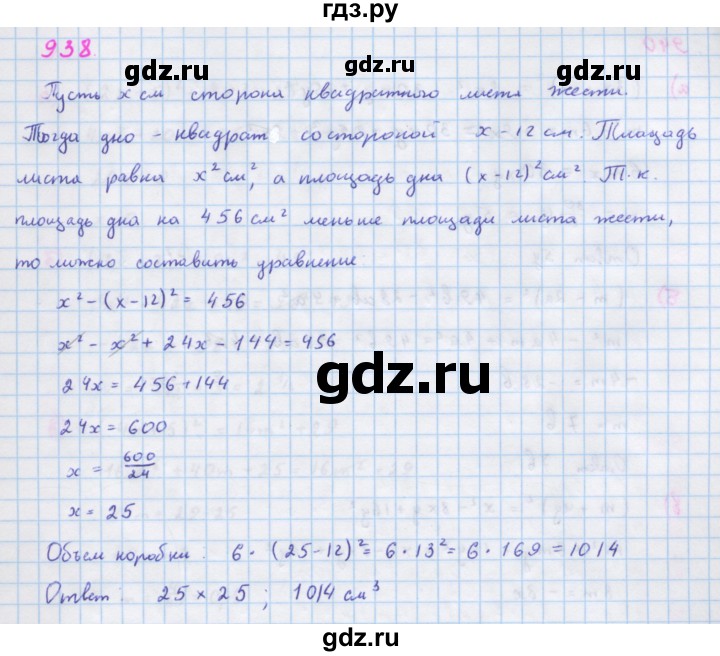 гдз.ру
938
gdz.ru
gdz.ru
Пусть x см сторона квадратного листа жести.
Тогда дно - квадрат со стороной x - 12 см. Площадь
листа равна x² см², а площадь дна (x-12)² см². Т.к.
площадь дна на 456 см² меньше площади листа жести,
то можно составить уравнение:
x² - (x-12)² = 456
x² - x² + 24x - 144 = 456
24x = 456 + 144
gdz.ru
24x = 600
x = 600/24
x = 25
Объем коробки: 6 · (25-12)² = 6 · 13² = 6 · 169 = 1014
Ответ: 25 × 25 ; 1014 см³
gdz.ru
gdz.ru
gdz.ru